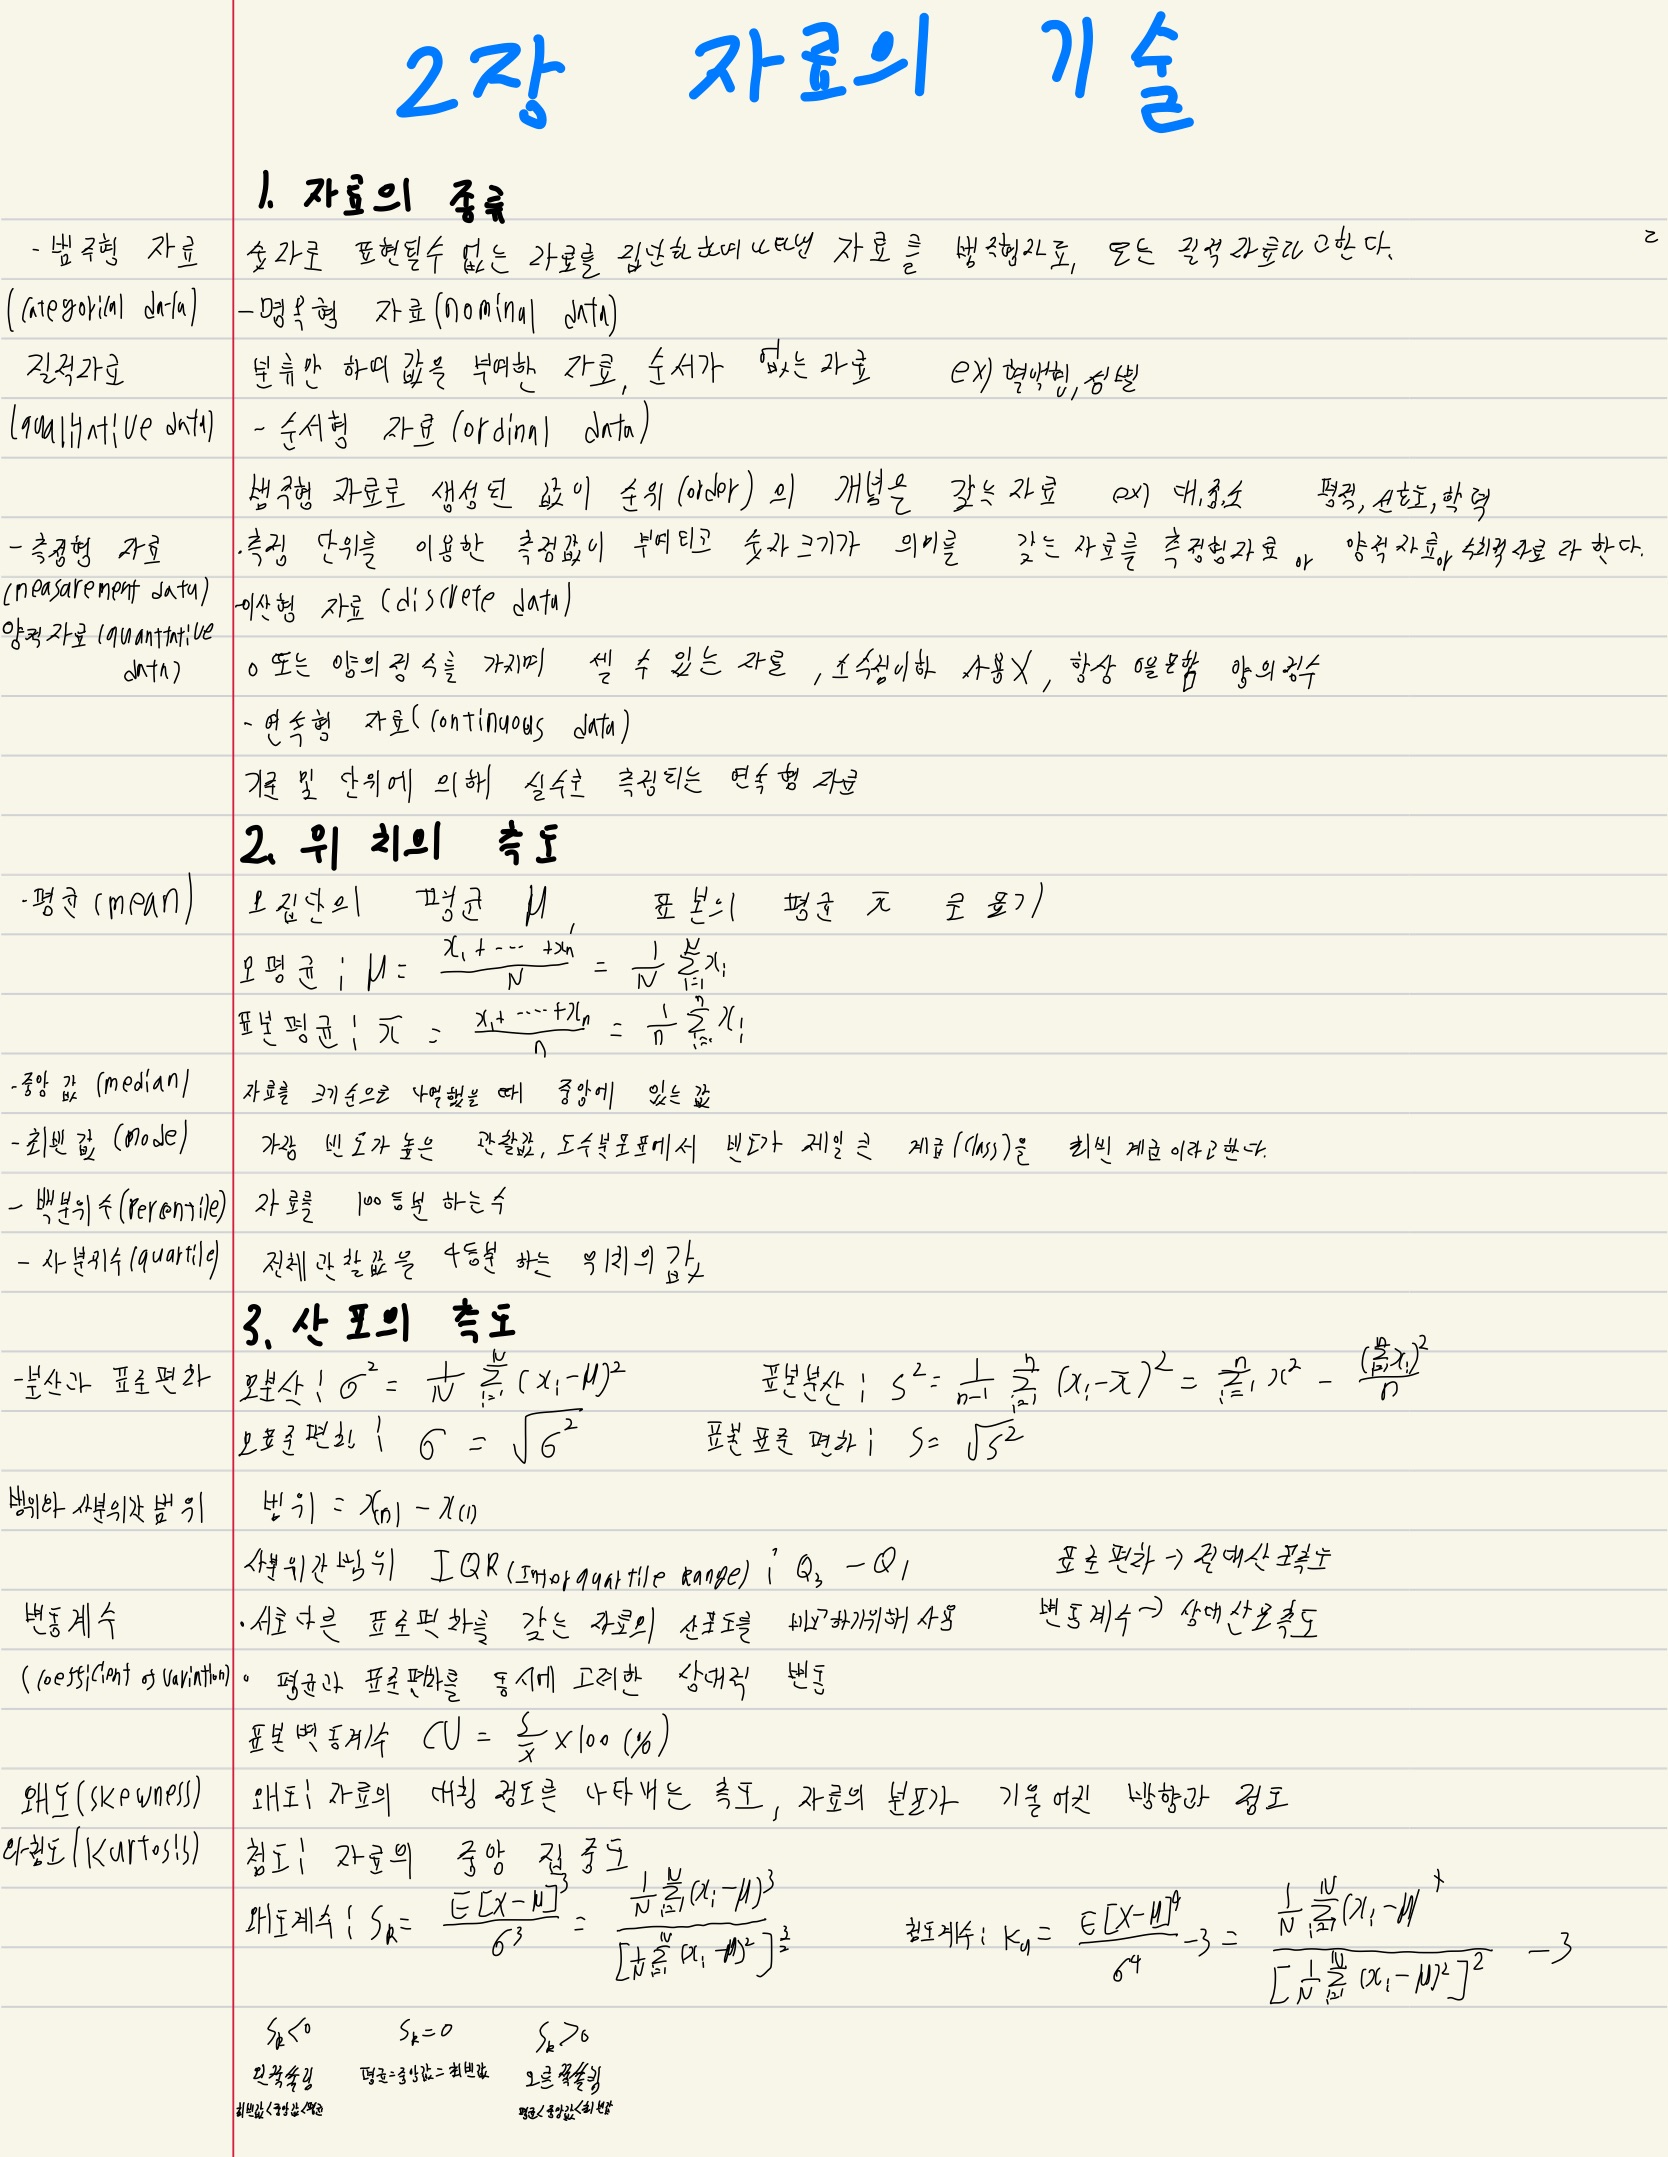 2장 자료의 기술
1. 자료의 종류
- 범주형 자료
(categorical data)
질적자료
(qualitative data)
숫자로 표현될수 없는 자료를 집단화하여 나타낸 자료를 범주형자료, 또는 질적 자료라고한다.
- 명목형 자료(nominal data)
분류만 하며 값을 부여한 자료, 순서가 없는 자료 ex) 혈액형, 성별
- 순서형 자료 (ordinal data)
범주형 자료로 생성된 값이 순위 (order) 의 개념을 갖는 자료 ex) 대,중,소 평점, 선호도, 학력
- 측정형 자료
(measarement data)
양적자료 (quanttative
data)
·측정 단위를 이용한 측정값이 부여되고 숫자크기가 의미를 갖는 자료를 측정형자료 or 양적 자료 or 수치적 자료 라 한다.
-이산형 자료 (discrete data)
0 또는 양의 정수를 가지며 셀 수 있는 자료, 소수점이하 사용X, 항상 0을포함 양의정수
- 연속형 자료 (continuous data)
기준 및 단위에 의해 실수로 측정되는 연속형 자료
2. 위치의 측도
-평균 (mean)
모집단의 평균 μ, 표본의 평균 x̄ 로 표기
모평균 ; μ = (x₁ + ··· + xₙ)/N = 1/N Σᵢ₌₁ᴺ xᵢ
표본평균 ; x̄ = (x₁ + ····· + xₙ)/n = 1/n Σᵢ₌₁ⁿ xᵢ
-중앙값 (median)
자료를 크기순으로 나열했을 때 중앙에 있는 값
-최빈값 (mode)
가장 빈도가 높은 관찰값, 도수분포표에서 빈도가 제일 큰 계급(class)을 최빈 계급 이라고한다.
- 백분위수 (percentile)
자료를 100등분 하는수
- 사분위수 (quartile)
전체관찰값을 4등분 하는 위치의 값
3. 산포의 측도
-분산과 표준편차
모분산 ; σ² = 1/N Σᵢ₌₁ᴺ (xᵢ-μ)² 표본분산 ; s² = 1/(n-1) Σᵢ₌₁ⁿ (xᵢ-x̄)² = Σᵢ₌₁ⁿ x² - (Σᵢ₌₁ⁿ xᵢ)²/n
모표준편차 ; σ = √σ² 표본 표준 편차 ; S = √s²
범위와 사분위간 범위
범위 = x(n) - x(1)
사분위간범위 IQR (Interquartile Range) ; Q₃ - Q₁ 표준편차 → 절대산포측도
변동계수
(coefficient of variation)
·서로다른 표준편차를 갖는 자료의 산포도를 비교하기위해 사용 변동계수 → 상대산포측도
· 평균과 표준편차를 동시에 고려한 상대적 변동
표본변동계수 CV = s/x̄ × 100 (%)
왜도 (skewness)
와첨도 (kurtosis)
왜도 ; 자료의 대칭 정도를 나타내는 측도, 자료의 분포가 기울어진 방향과 정도
첨도 ; 자료의 중앙 집중도
왜도계수 ; Sₖ = E[X-μ]³/σ³ = 1/N Σᵢ₌₁ᴺ (xᵢ-μ)³ / [1/N Σᵢ₌₁ᴺ (xᵢ-μ)²]^(3/2) 첨도계수 ; Kᵤ = E[X-μ]⁴/σ⁴ - 3 = 1/N Σᵢ₌₁ᴺ (xᵢ-μ)⁴ / [1/N Σᵢ₌₁ᴺ (xᵢ-μ)²]² - 3
Sₖ<0 Sₖ=0 Sₖ>0
왼쪽쏠림 평균=중앙값=최빈값 오른쪽쏠림
최빈값<중앙값<평균 평균<중앙값<최빈값